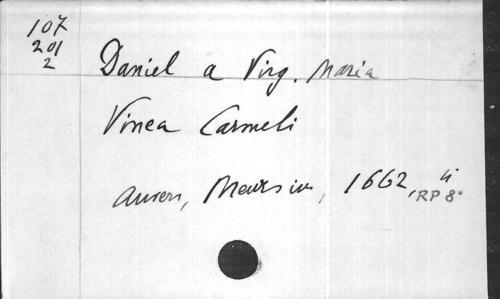 107
201
2
Daniel a Virg. Maria
Vinea Carmeli
Meursius, 1662, 4
RP 8°